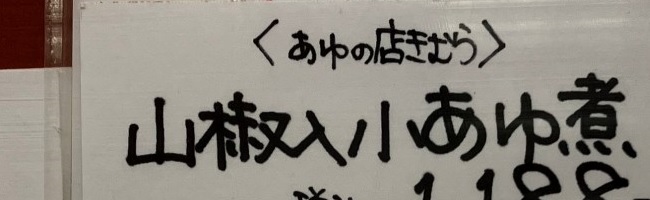 〈あゆの店きむら〉
山椒入小あゆ煮
税込 1,188-